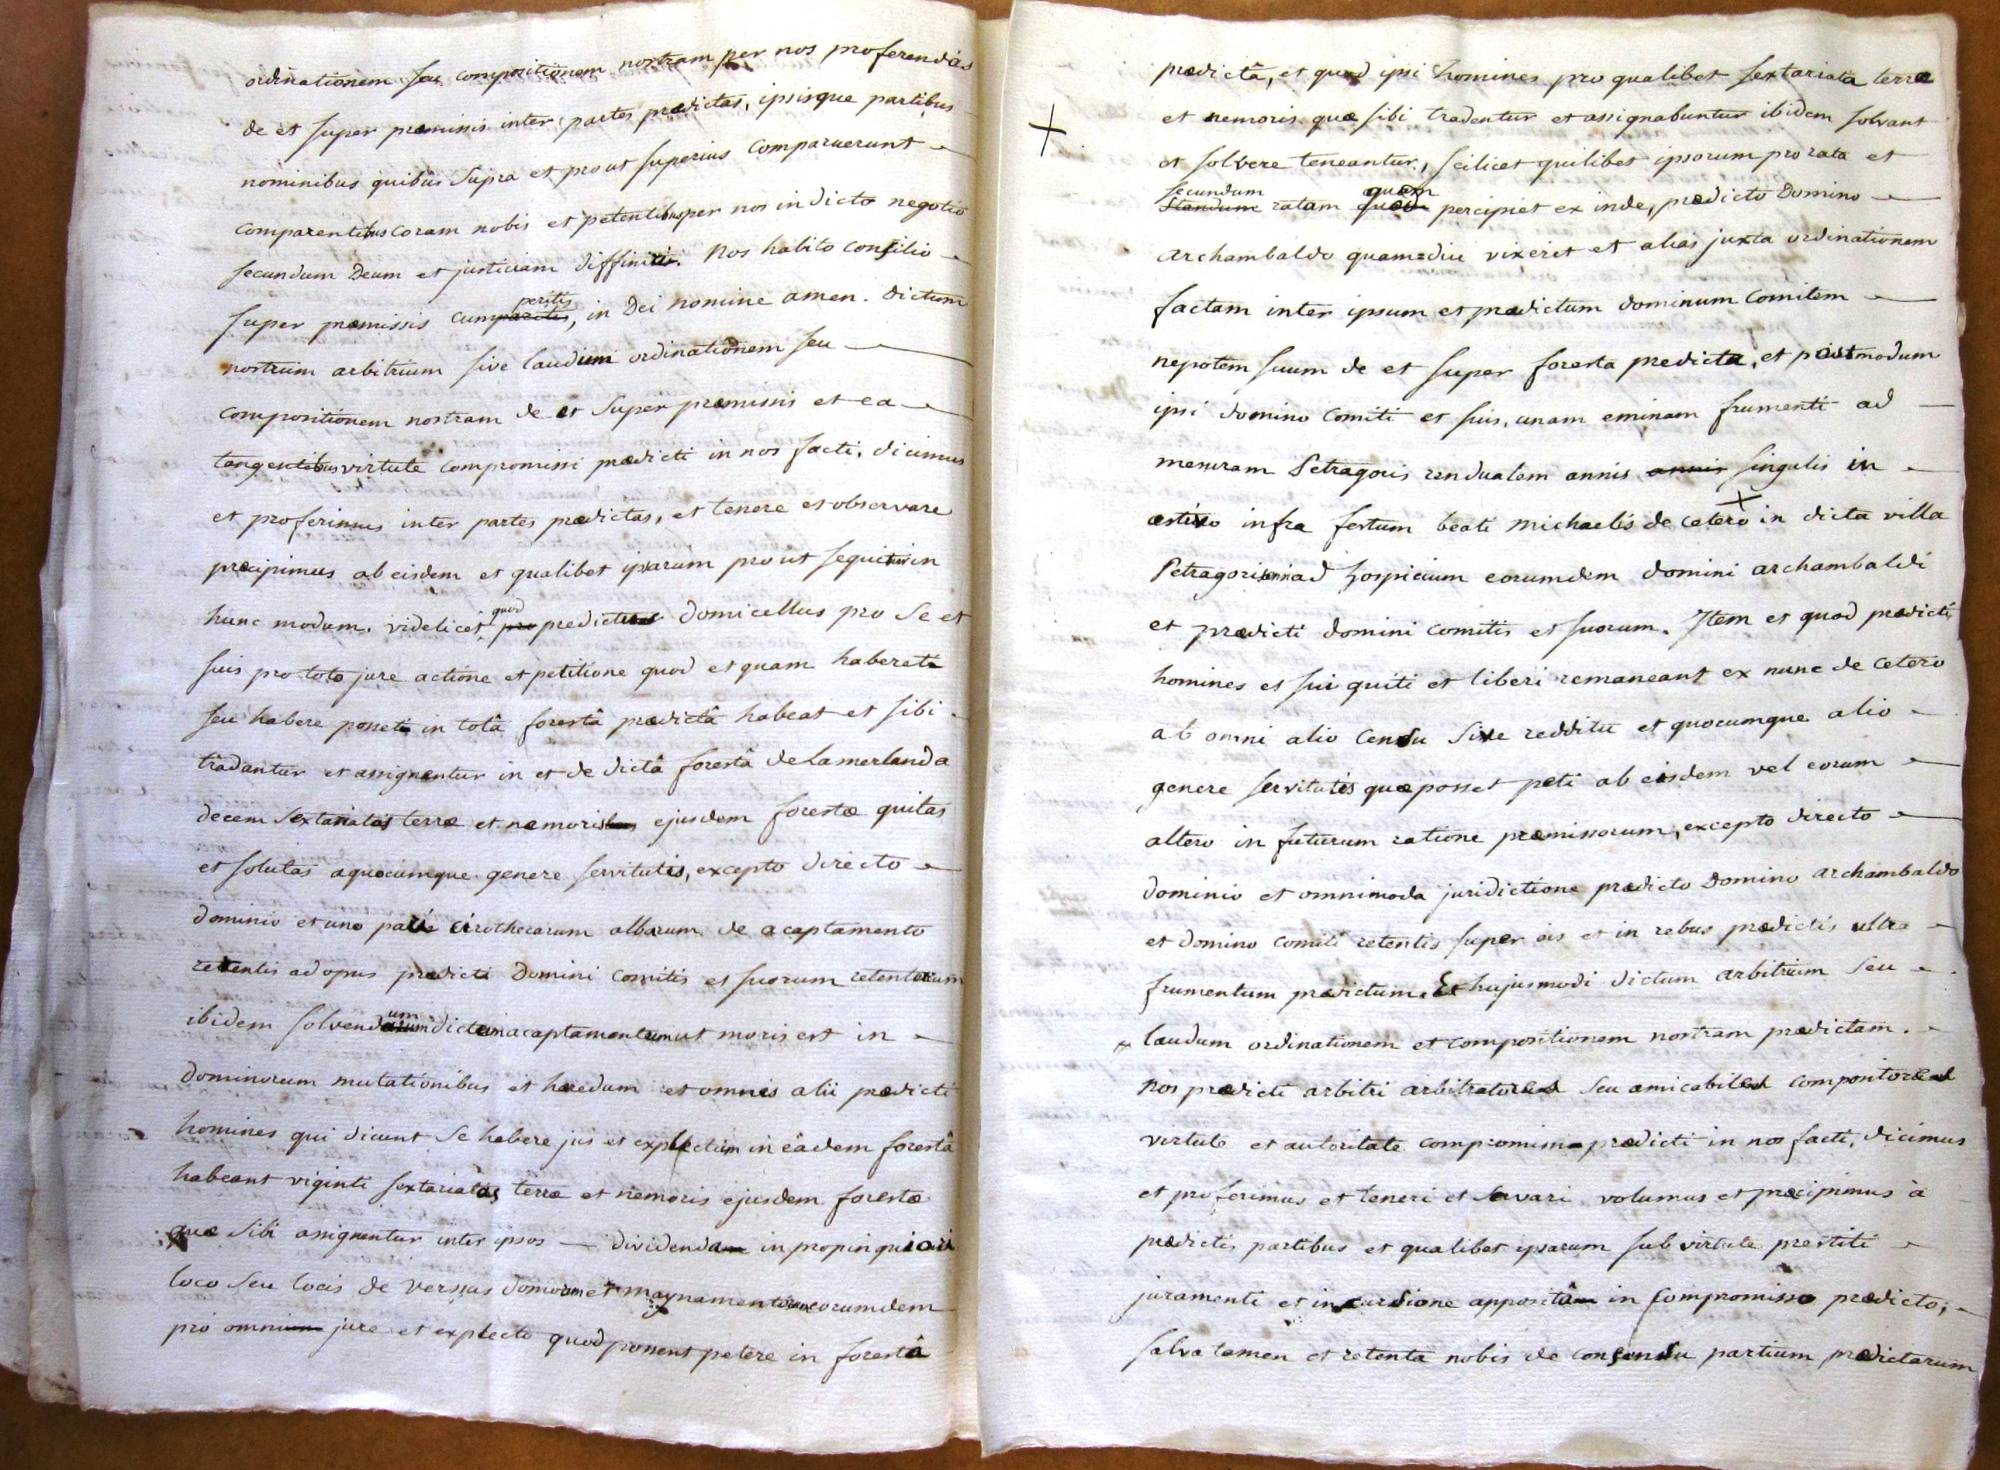 ordinationem seu compositionem nostram per nos proferendas
de et super præmissis inter partes prædictas, ipsisque partibus
nominibus quibus supra et prout superius comparuerunt
comparentibus coram nobis et petentibus per nos in dicto negotio
secundum Deum et justiciam diffiniri. Nos habito consilio
super præmissis cum peritis, in Dei nomine amen. dictum
nostrum arbitrium sive laudum ordinationem seu
compositionem nostram de et super præmissis et ea
tangentibus virtute compromissi prædicti in nos facti, dicimus
et proferimus inter partes prædictas, et tenere et observare
præcipimus ab eisdem et qualibet ipsarum prout sequitur in
hunc modum. videlicet quod predictus domicellus pro se et
suis pro toto jure actione et petitione quod et quam haberet
seu habere posset in totâ forestâ prædictâ habeat et sibi
tradantur et assignentur in et de dictâ forestâ de Lamerlanda
decem sextariatas terræ et nemoris ejusdem forestæ quitas
et solutas a quocumque genere servitutis, excepto directo
dominio et uno pari cirothecarum albarum de acaptamento
retentis ad opus prædicti Domini Comitis et suorum
ibidem solvendum dictum acaptamentum ut moris est in
Dominorum mutationibus et hæredum et omnes alii prædicti
homines qui dicunt se habere jus et explectum in eâdem forestâ
habeant viginti sextariatas terræ et nemoris ejusdem forestæ
quæ sibi assignentur inter ipsos dividenda in propinquiori
loco seu locis de versus domorum et maynamentorum eorumdem
pro omni jure et explecto quod possent petere in forestâ
prædictâ, et quod ipsi homines pro qualibet sextariata terræ
et nemoris quæ sibi tradentur et assignabuntur ibidem solvant
et solvere teneantur, scilicet quilibet ipsorum pro rata et
secundum ratam quam percipiet ex inde, prædicto Domino
archambaldo quamdiu vixerit et alias juxta ordinationem
factam inter ipsum et prædictum dominum Comitem
nepotem suum de et super foresta predicta, et postmodum
ipsi domino Comiti et suis, unam eminam frumenti ad
mensuram Petragoris rendualem annis singulis in
æstivo infra festum beati Michaelis de cetero in dicta villa
Petragoricensi ad hospicium eorumdem domini archambaldi
et prædicti domini Comitis et suorum. Item et quod prædicti
homines et sui quiti et liberi remaneant ex nunc de cetero
ab omni alio censu sive redditu et quocumque alio
genere servitutis quæ posset peti ab eisdem vel eorum
altero in futurum ratione præmissorum, excepto directo
dominio et omnimoda juridictione prædicto Domino archambaldo
et domino comiti retentis super eis et in rebus prædictis ultra
frumentum prædictum. Et hujusmodi dictum arbitrium seu
laudum ordinationem et compositionem nostram prædictam.
Nos prædicti arbitri arbitratores seu amicabiles compositores
virtute et autoritate compromissi prædicti in nos facti, dicimus
et proferimus et teneri et servari volumus et præcipimus à
prædictis partibus et qualibet ipsarum sub virtute prestiti
juramenti et incursione apposita in Compromisso prædicto;
salva tamen et retenta nobis de consensu partium prædictarum